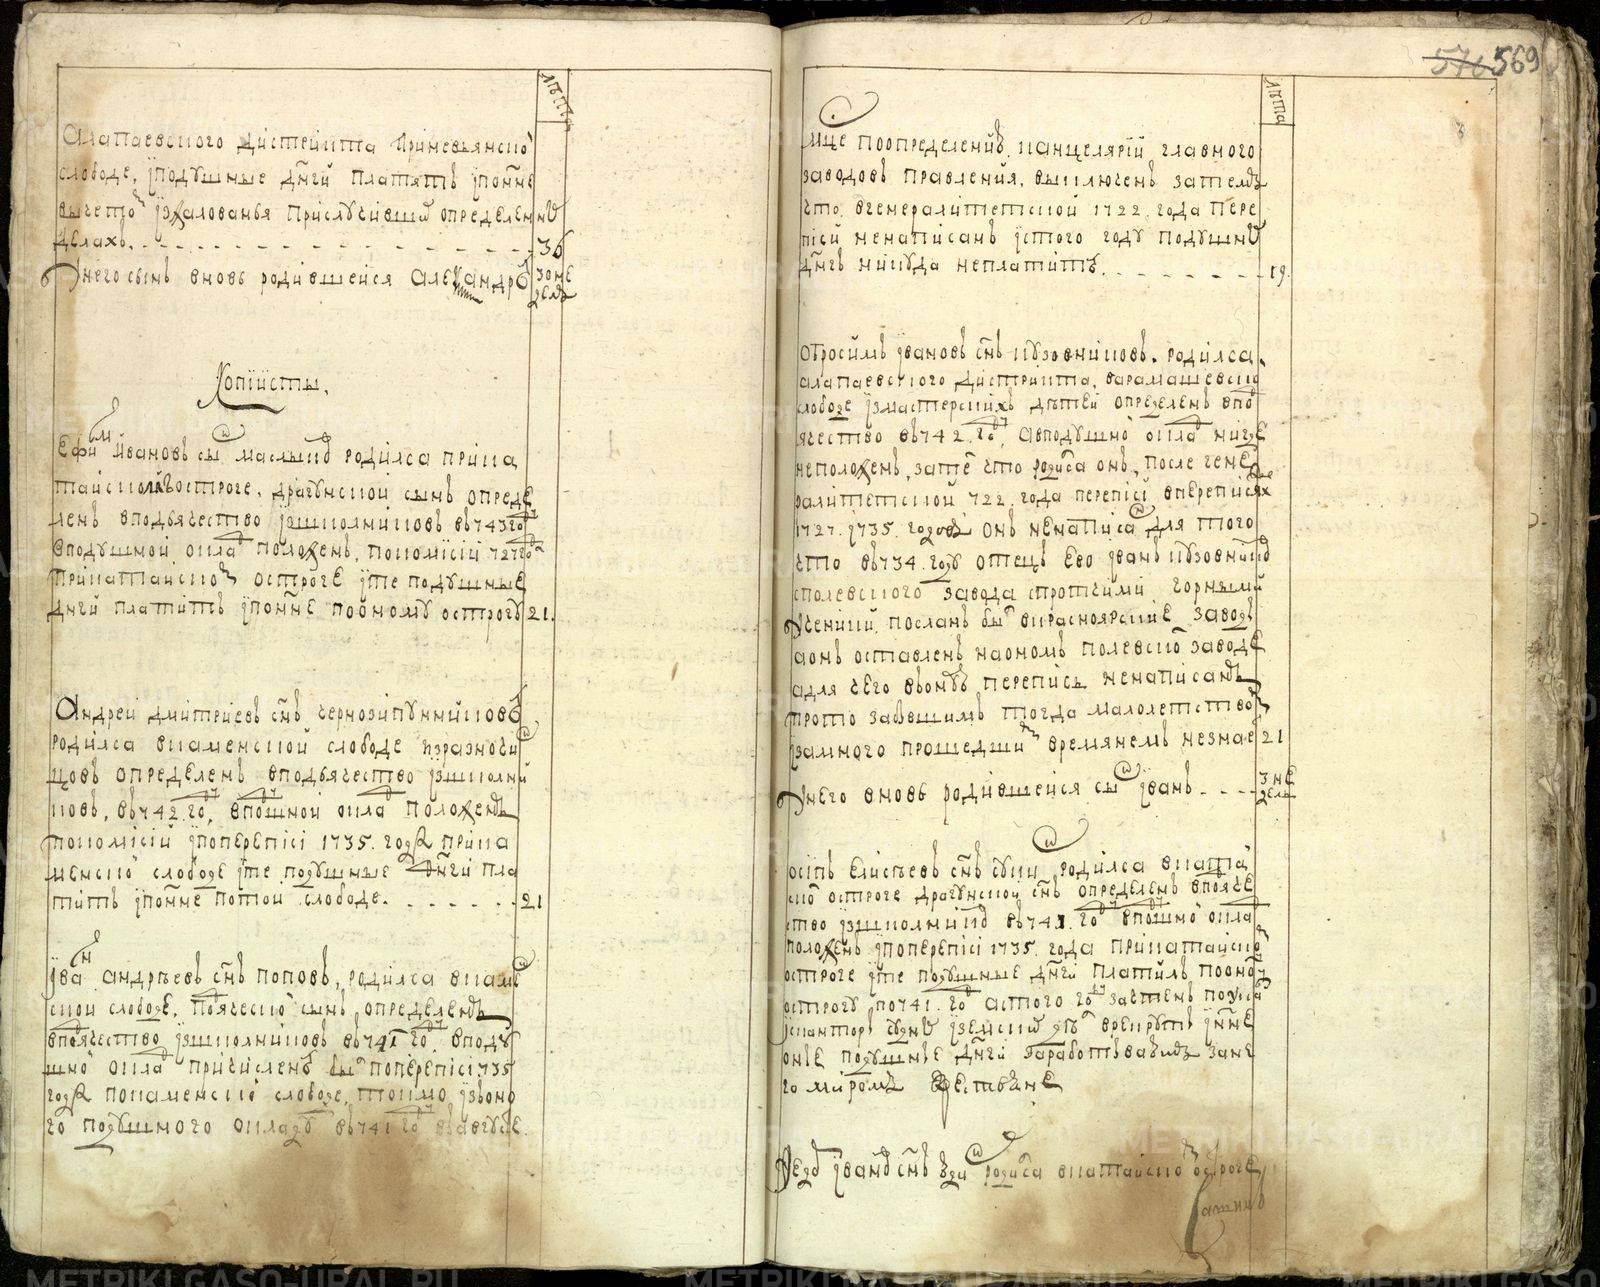 лѣта
Алапаевского дистрикта Приневьянской
слободе, и подушные днги платятъ и понне
вычетом из жалованья при случившихся определенны
делахъ. 36
У него сынъ вновь родившейся Александръ 30 не
дель
Копиисты.
Ефим Ивановъ сын Маслыковъ родился при Ка
тайском остроге, драгунской сынъ опреде
ленъ в подьячество из школниковъ в 743 году
в подушной оклад положенъ, по комисии 727 году
при Катайском остроге и те подушные
днги платитъ и понне по оному острогу 21.
Андрей Дмитриевъ снъ Чернозипунниковъ
родился в Каменской слободе из разночи
нцовъ определенъ в подьячество из школни
ковъ, в 742 году, в подушной оклад положенъ
по комисии и по переписи 1735. году при Ка
менской слободе и те подушные днги пла
титъ и понне по той слободе. 21
Иван Андрѣевъ снъ Поповъ, родился в Каме
нской слободе, подьяческой сынъ, определенъ
в подьячество из школниковъ в 741 году, в поду
шной оклад причисленъ был по переписи 1735
году по Каменской слободе, токмо из оно
го подушного окладу в 741 году в августе
569
лѣта
мце по определению канцелярии главного
заводовъ правления, выключенъ за темъ
что в генералитетской 1722 года пере
писи не написанъ и с того году подушных
днгъ никуда не платитъ. 19.
Обросимъ Ивановъ снъ Кузовниковъ. родился
Алапаевского дистрикта, в Арамашевской
слободе из мастерскихъ дѣтей определенъ в под
ячество в 742 году, а в подушной оклад нигде
не положенъ, затем что родился онъ после гене
ралитетской 722 года переписи, в переписях
1727. и 735. годовъ онъ не написан для того
что в 734 году отецъ ево Иванъ Кузовников
с Полевского завода с протчими горными
учении посланъ был в Красноярские заводы
а онъ оставленъ на ономъ Полевском заводе
а для чего в оную перепись не написанъ
про то за бывшимъ тогда малолетством
и за много прошедшим времянемъ не знает 21
У него вновь родившейся сын Иванъ 3 не
дель
Осипъ Елисѣевъ снъ родился в Катай
ском остроге драгунской снъ определенъ в подьяче
ство из школников в 741 году в подушной оклад
положенъ и по переписи 1735. года при Катайском
остроге и те подушные днги платилъ по оному
острогу по 741 году а с того году зачтенъ по
из земских в рекруты и нне
оные подушные днги за не
го миромъ крестьяне
Иванов снъ родился в Катайском остроге